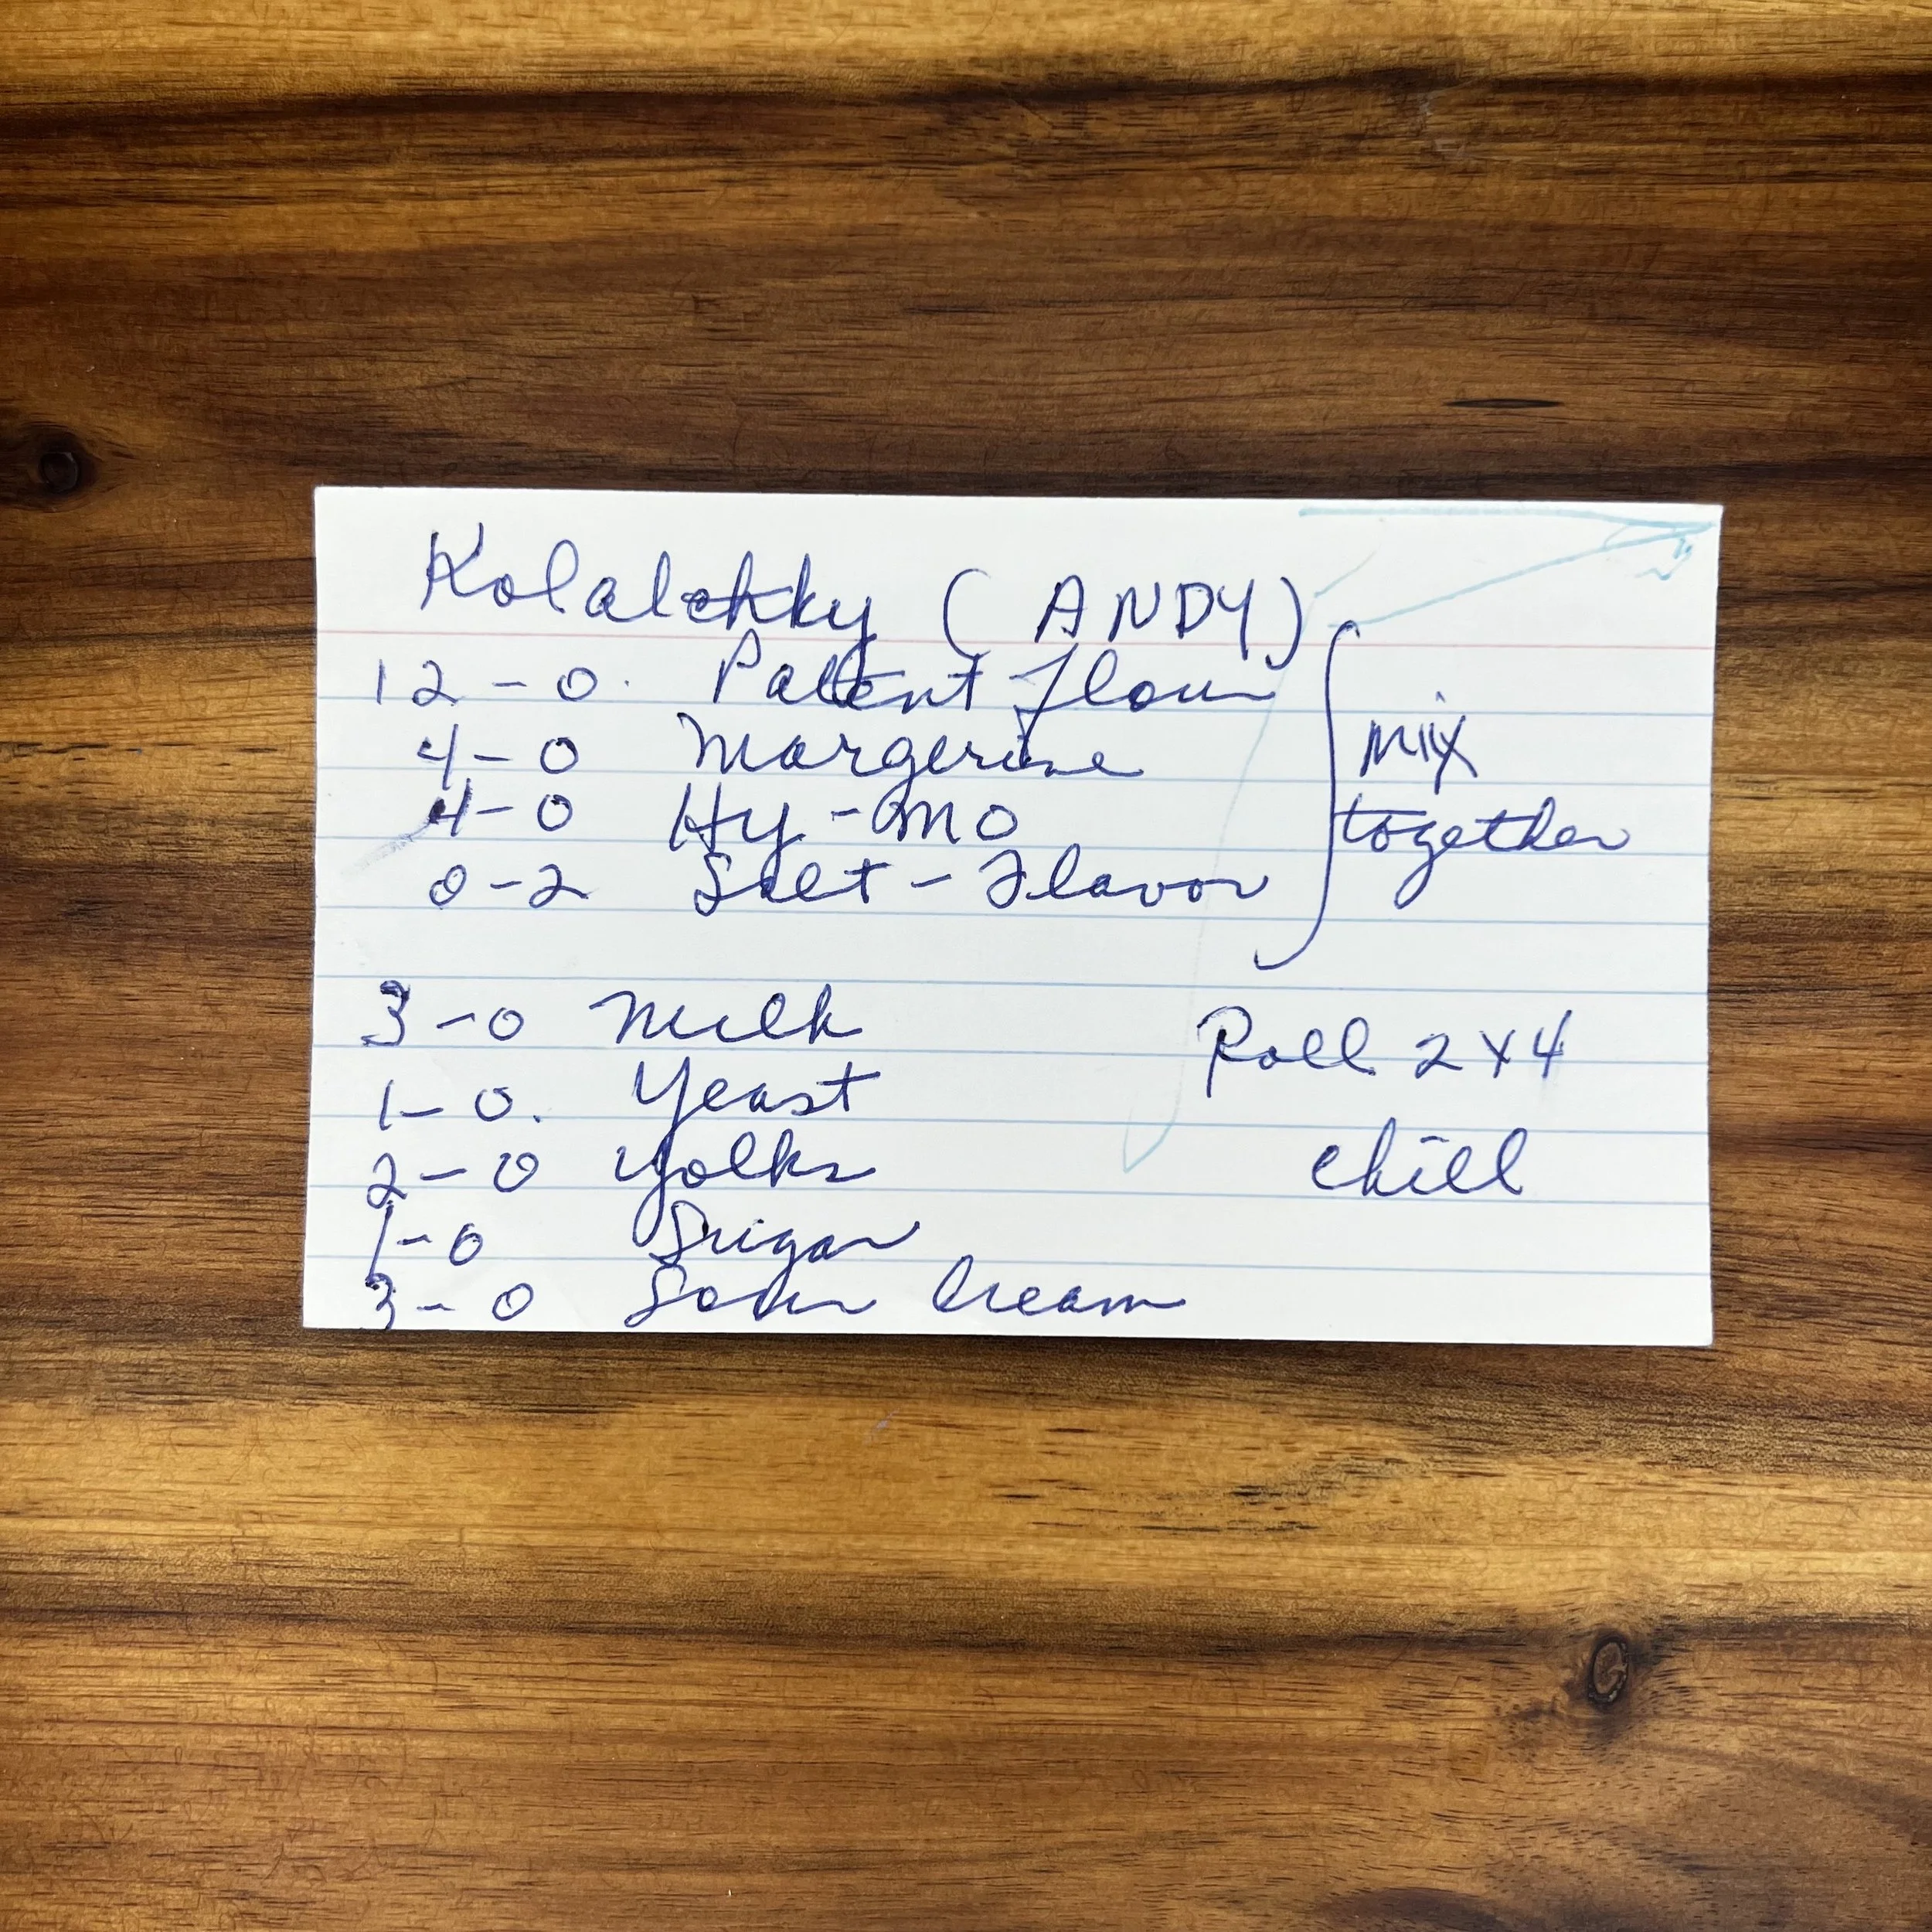 Kolalchky (ANDY)
12 - 0. Patent flour
4 - 0 Margerine
4 - 0 Hy - mo
0 - 2 Salt - Flavor
mix
together
3 - 0 Milk
1 - 0. Yeast
2 - 0 Yolks
1 - 0 Sugar
3 - 0 Sour Cream
Roll 2 x 4
chill